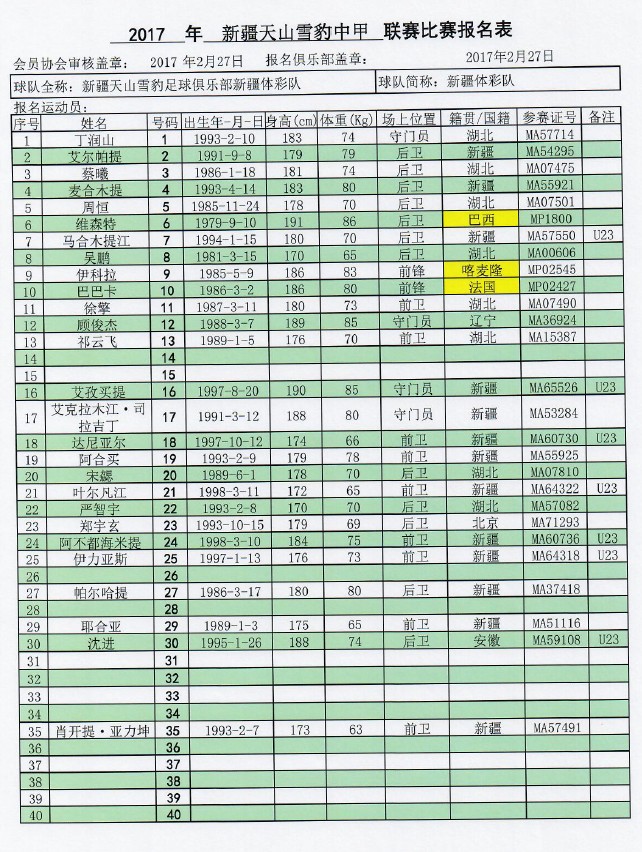 2017 年 新疆天山雪豹中甲 联赛比赛报名表
会员协会审核盖章： 2017 年2月27日 报名俱乐部盖章： 2017年2月27日
球队全称：新疆天山雪豹足球俱乐部新疆体彩队 球队简称：新疆体彩队
报名运动员：
序号 姓名 号码 出生年-月-日 身高(cm) 体重(Kg) 场上位置 籍贯/国籍 参赛证号 备注
1 丁润山 1 1993-2-10 183 74 守门员 湖北 MA57714
2 艾尔帕提 2 1991-9-8 179 79 后卫 新疆 MA54295
3 蔡曦 3 1986-1-18 181 74 后卫 湖北 MA07475
4 麦合木提 4 1993-4-14 183 80 后卫 新疆 MA55921
5 周恒 5 1985-11-24 178 70 后卫 湖北 MA07501
6 维森特 6 1979-9-10 191 86 后卫 巴西 MP1800
7 马合木提江 7 1994-1-15 180 70 后卫 新疆 MA57550 U23
8 吴鹏 8 1981-3-15 170 65 后卫 湖北 MA00606
9 伊科拉 9 1985-5-9 186 83 前锋 喀麦隆 MP02545
10 巴巴卡 10 1986-3-2 186 80 前锋 法国 MP02427
11 徐擎 11 1987-3-11 180 73 前卫 湖北 MA07490
12 顾俊杰 12 1988-3-7 189 85 守门员 辽宁 MA36924
13 祁云飞 13 1989-1-5 176 70 前卫 湖北 MA15387
14 14
15 15
16 艾孜买提 16 1997-8-20 190 85 守门员 新疆 MA65526 U23
17 艾克拉木江·司拉吉丁 17 1991-3-12 188 80 守门员 新疆 MA53284
18 达尼亚尔 18 1997-10-12 174 66 前卫 新疆 MA60730 U23
19 阿合买 19 1993-2-9 179 78 前卫 新疆 MA55925
20 宋勰 20 1989-6-1 178 70 后卫 湖北 MA07810
21 叶尔凡江 21 1998-3-11 172 65 前卫 新疆 MA64322 U23
22 严智宇 22 1993-2-8 170 70 后卫 湖北 MA57082
23 郑宇玄 23 1993-10-15 179 69 后卫 北京 MA71293
24 阿不都海米提 24 1998-3-10 184 75 前卫 新疆 MA60736 U23
25 伊力亚斯 25 1997-1-13 176 73 前卫 新疆 MA64318 U23
26 26
27 帕尔哈提 27 1986-3-17 180 80 后卫 新疆 MA37418
28 28
29 耶合亚 29 1989-1-3 175 65 前卫 新疆 MA51116
30 沈进 30 1995-1-26 188 74 后卫 安徽 MA59108 U23
31 31
32 32
33 33
34 34
35 肖开提·亚力坤 35 1993-2-7 173 63 前卫 新疆 MA57491
36 36
37 37
38 38
39 39
40 40